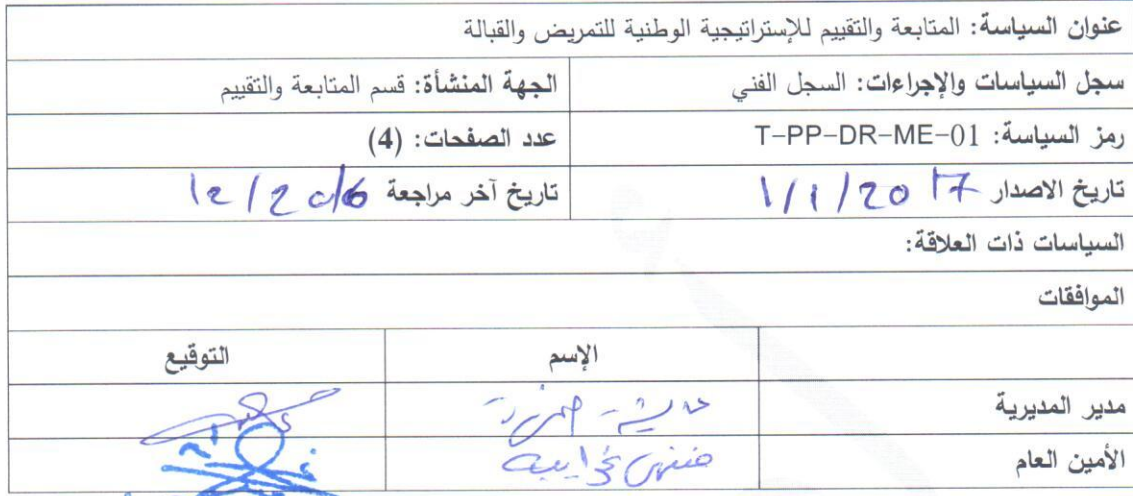 عنوان السياسة: المتابعة والتقييم للإستراتيجية الوطنية للتمريض والقبالة
سجل السياسات والإجراءات: السجل الفني
الجهة المنشأة: قسم المتابعة والتقييم
رمز السياسة: T-PP-DR-ME-01
عدد الصفحات: (4)
تاريخ الاصدار 1/1/2017
تاريخ آخر مراجعة 12/2016
السياسات ذات العلاقة:
الموافقات
الإسم
التوقيع
مدير المديرية
الأمين العام